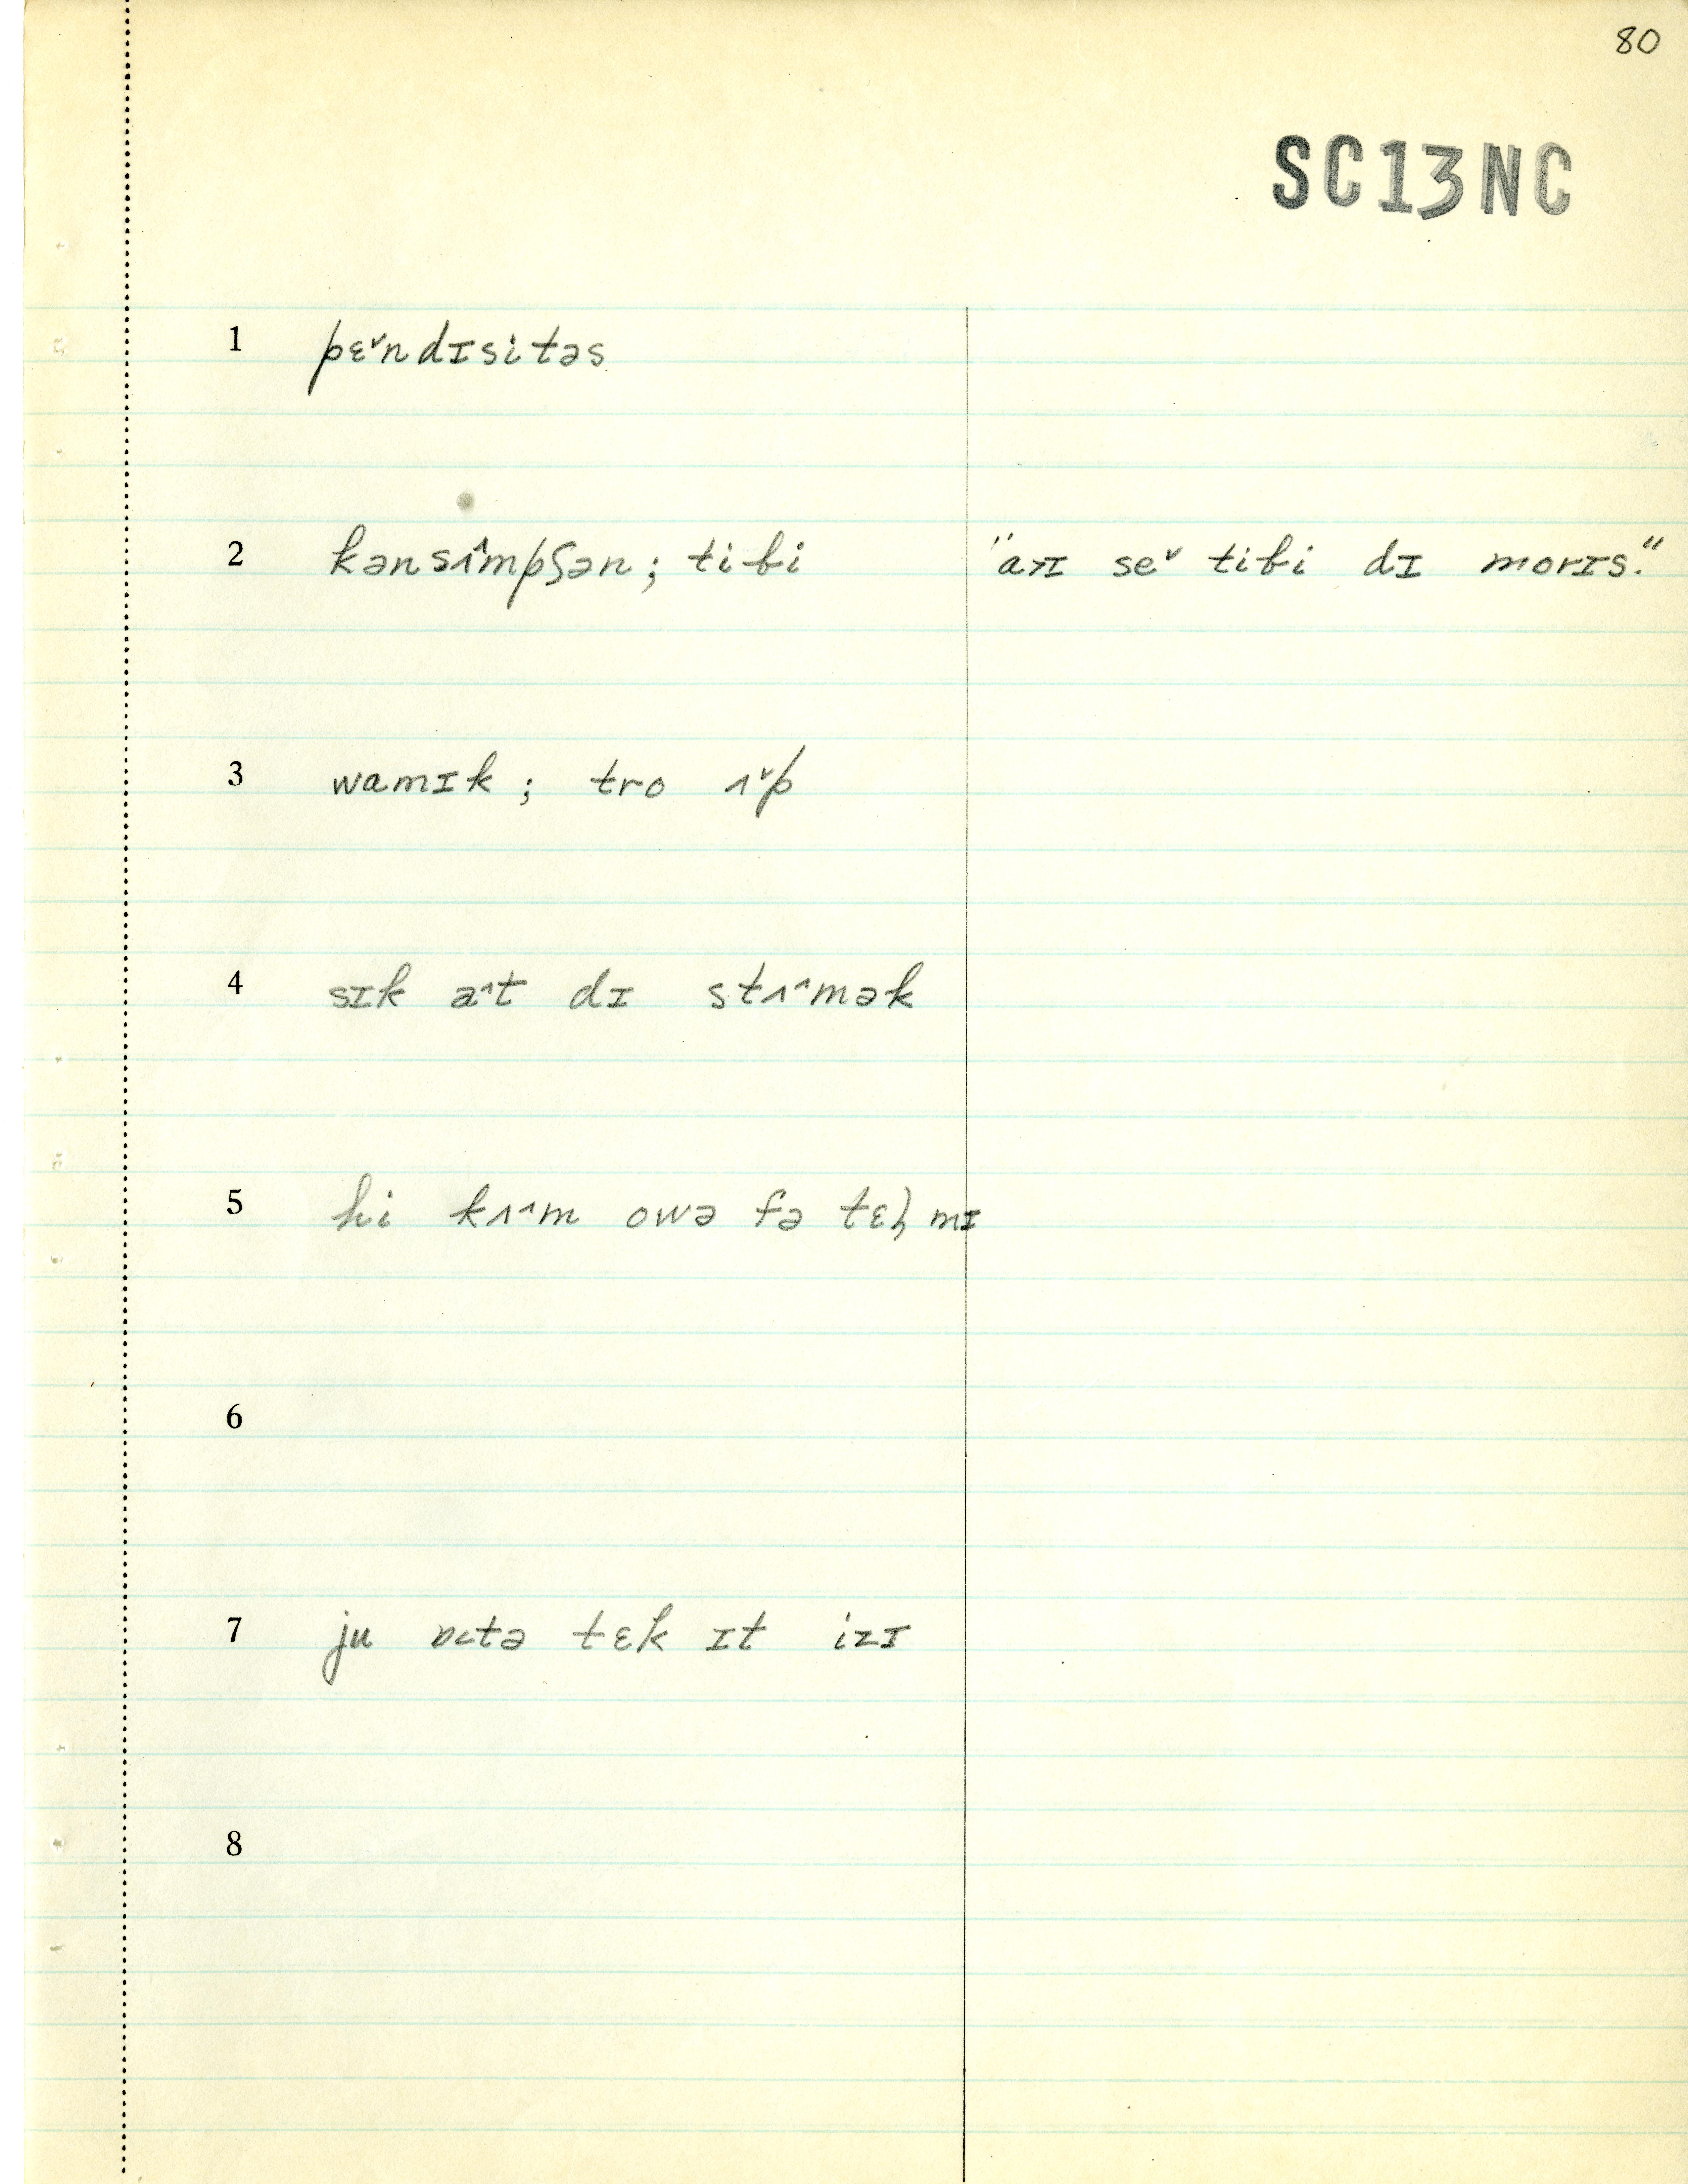 80
SC13NC
1 pɛ˅ndɪsitəs
2 kənsʌ^mpʃən; tibi "aɪ se˅ tibi dɪ morɪs."
3 wamɪk; tro ʌ˅p
4 sɪk a^t dɪ stʌ^mək
5 hi kʌ^m owə fə tɛl mɪ
6
7 ju ɒ˂tə tɛk ɪt izɪ
8